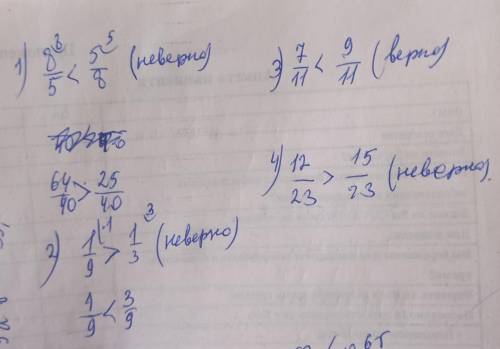 1) 8/5 < 5/8 (неверно)
64/40 > 25/40
2) 1/9 > 1/3 (неверно)
1/9 < 3/9
3) 7/11 < 9/11 (верно)
4) 12/23 > 15/23 (неверно).